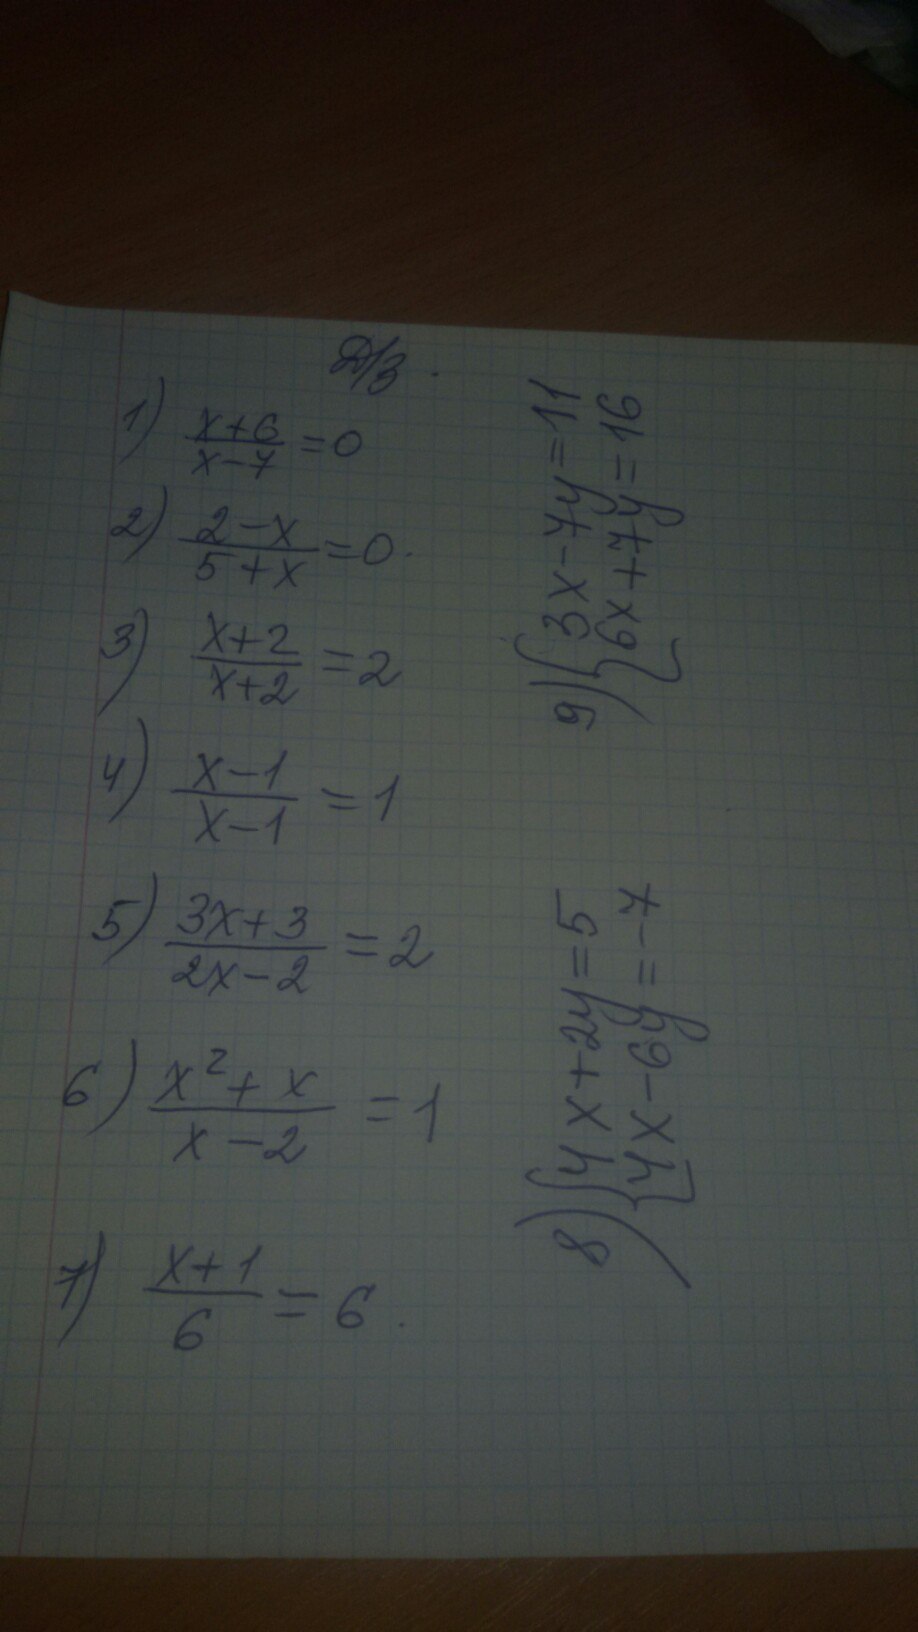 Д/З.
1) (x+6)/(x-7) = 0
2) (2-x)/(5+x) = 0.
3) (x+2)/(x+2) = 2
4) (x-1)/(x-1) = 1
5) (3x+3)/(2x-2) = 2
6) (x²+x)/(x-2) = 1
7) (x+1)/6 = 6.
8) { 4x+2y=5
4x-6y=-7
9) { 3x-7y=11
6x+7y=16